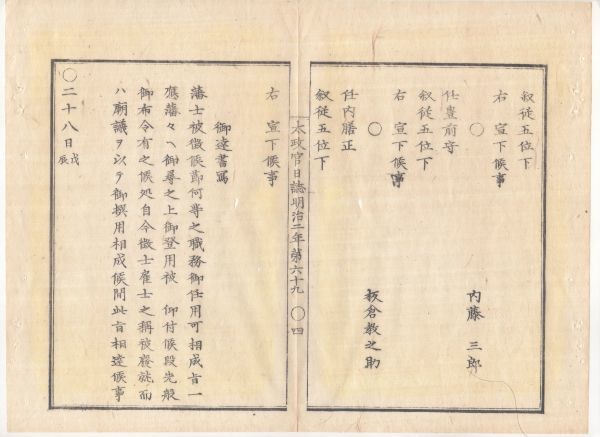 叙従五位下
右　宣下候事
○
内藤　三郎
任豊前守
叙従五位下
右　宣下候事
○
板倉教之助
任内膳正
叙従五位下
太政官日誌明治二年第六十九　○　四
右　宣下候事
御達書写
藩士被徴候節何等之職務御任用可相成旨一
應藩々ヘ御尋之上御登用被　仰付候段先般
御布令有之候処自今徴士雇士之称被廃就而
ハ廟議ヲ以テ御撰用相成候間此旨相達候事
○二十八日戊辰